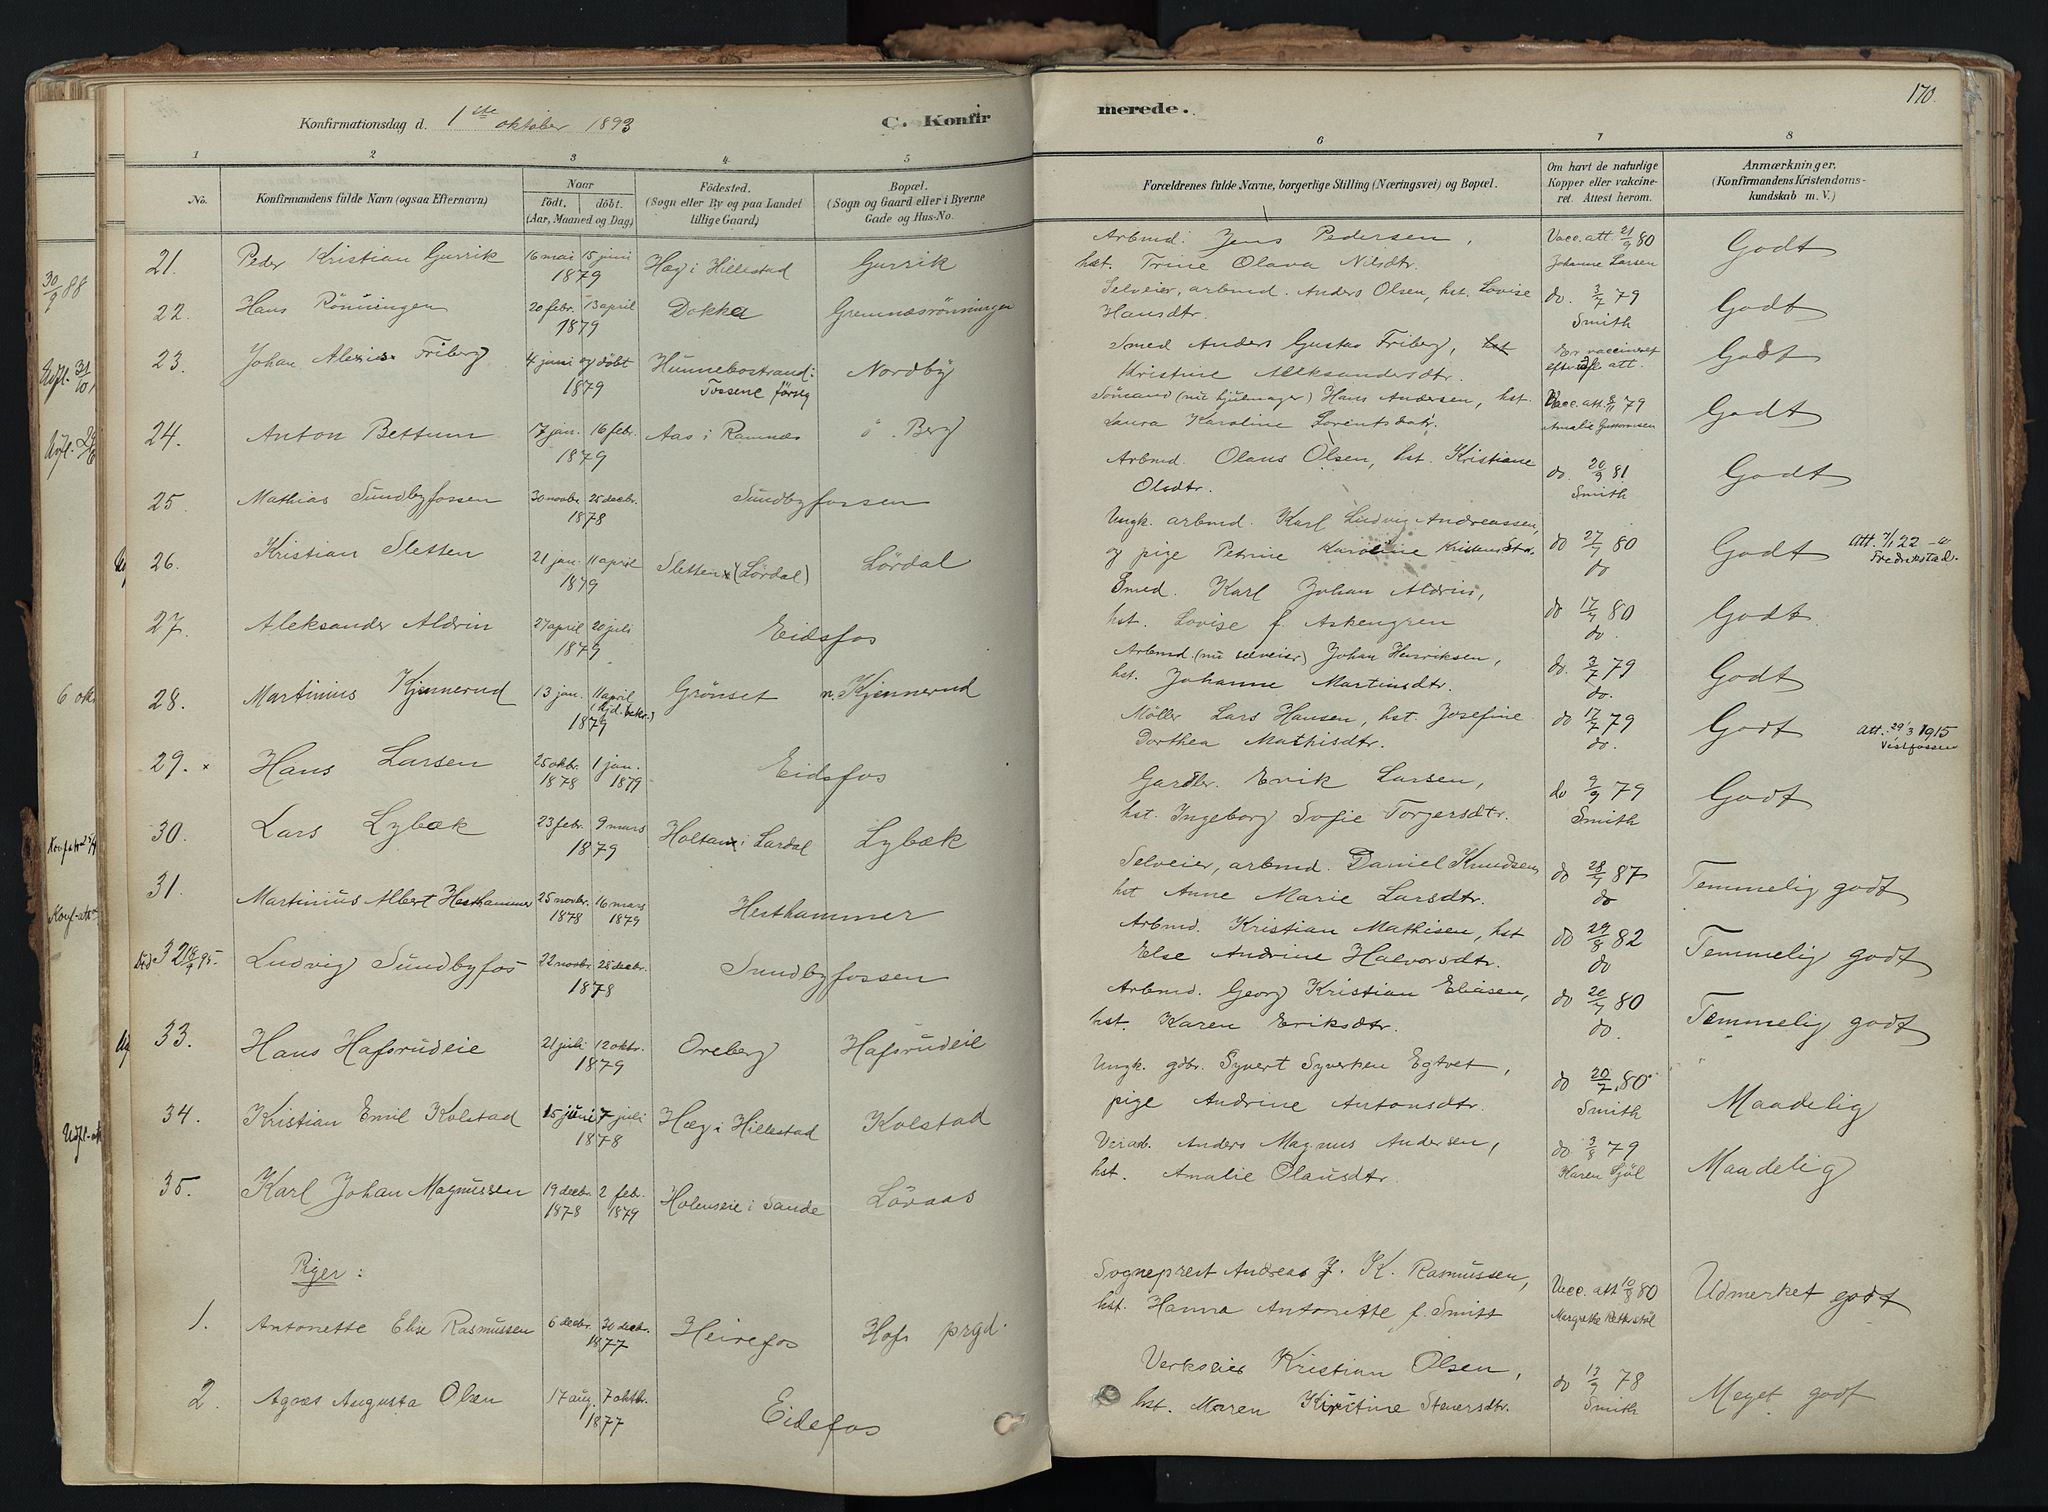 Konfirmationsdag d. 1ste oktober 1893
C. Konfir
merede.
170.
1 2 3 4 5 6 7 8
No.
Konfirmandens fulde Navn (ogsaa Efternavn)
Naar
født. døbt.
(Aar, Maaned og Dag)
Fødested.
(Sogn eller By og paa Landet
tillige Gaard)
Bopæl.
(Sogn og Gaard eller i Byerne
Gade og Hus-No.
Forældrenes fulde Navne, borgerlige Stilling (Næringsvei) og Bopæl.
Om havt de naturlige
Kopper eller vakcine-
ret. Attest herom.
Anmærkninger.
(Konfirmandens Kristendoms-
kundskab m. V.)
21. Peder Kristian Gurrik 16 mai 15 juni 1879 Hæg i Hillestad Gurrik
Arbmd. Jens Pedersen, Vacc. att. 21/9 80 Godt
hst. Trine Olava Nilsdtr. Johanne Larsen
22. Hans Rönningen 20 febr. 13 april 1879 Dokka Gremnæsrönningen
Selveier, arbmd. Anders Olsen, hst. Lovise do. 3/7 79 Godt
Hansdtr. Smith
23. Johan Alexis Friberg 4 juni og döbt 1879 Hunnebostrand: Tossene försg Nordby
Smed Anders Gustav Friberg, hst Er vaccineret Godt
Kristine Aleksandersdtr. att.
24. Anton Bettum 17 jan. 16 febr. 1879 Aas i Ramnæs ö. Berg
Sömand (nu hjulmager) Hans Andersen, hst. Vacc. att. 8/11 79 Godt
Laura Karoline Lorentsdatr. Amalie
25. Mathias Sundbyfossen 30 novbr. 25 decbr. 1878 Sundbyfossen
Arbmd. Olaus Olsen, hst. Kristiane do. 20/9 81 Godt
Olsdtr. Smith
26. Kristian Sletten 21 jan. 11 april 1879 Sletten (Lördal) Lördal
Ungk. arbmd. Karl Ludvig Andreassen, do 27/7 80 Godt Att. 7/1 22
og pige Petrine Karoline Kristensdtr. do Fredrikstad.
27. Aleksander Aldrin 27 april 20 juli 1879 Eidsfos
Smed. Karl Johan Aldrin, do 17/7 80 Godt
hst. Lovise f. Askengren do.
28. Martinius Kjennerud 13 jan. 11 april (Hjd. bekr.) 1879 Grönset n. Kjennerud
Arbmd. (nu selveier) Johan Henriksen, do. 3/7 79 Godt
hst. Johanne Martinsdtr. do.
29. × Hans Larsen 25 oktbr. 1878 1 jan. 1879 Eidsfos
Möller Lars Hansen, hst. Josefine do 17/7 79 Godt Att. 29/3 1915
Dorthea Mathisdtr. do. Vestfossen
30. Lars Lybæk 23 febr. 9 mars 1879 Holtan i Lardal Lybæk
Gardbr. Erik Larsen, do 9/9 79 Godt
hst. Ingeborg Sofie Torgersdtr. Smith
31. Martinius Albert Hesthammer 25 novbr. 1878 16 mars 1879 Hesthammer
Selveier, arbmd. Daniel Knudsen, do 28/7 87 Temmelig godt
hst Anne Marie Larsdtr. do
Död 18/7 95. 32 Ludvig Sundbyfos 22 novbr. 25 decbr. 1878 Sundbyfossen
Arbmd. Kristian Mathisen, hst do 29/8 82 Temmelig godt
Else Andrine Halvorsdtr. do
33. Hans Hafsrudeie 21 juli 12 oktr. 1879 Oreberg Hafsrudeie
Arbmd. Georg Kristian Eliasen, do 20/7 80 Temmelig godt
hst. Karen Eriksdtr. do.
34. Kristian Emil Kolstad 15 juni 7 juli 1878 Hæg i Hillestad Kolstad
Ungk. gdbr. Syvert Syversen Egtvet, do 20/7 80 Maadelig
pige Andrine Antonsdtr. Smith
35. Karl Johan Magnussen 19 decbr. 1878 2 febr. 1879 Holenseie i Sande Lövaas
Anders Magnus Andersen, do 3/8 79 Maadelig
hst. Amalie Olausdtr. Karen Sjöl
Piger:
1. Antonette Else Rasmussen 6 decbr. 30 decbr. 1877 Heirefos Hofs prgd.
Sogneprest Andreas J. K. Rasmussen, Vacc. att 10/8 80 Udmerket godt
hst. Hanna Antonette f. Smitt Margrethe
2. Agnes Augusta Olsen 17 aug. 7 oktbr. 1877 Eidsfos
Verkseier Kristian Olsen, do 13/9 78 Meget godt
hst. Maren Kristine Steversdtr. Smith
30/9 88
Udfl. 31/10
6 okt